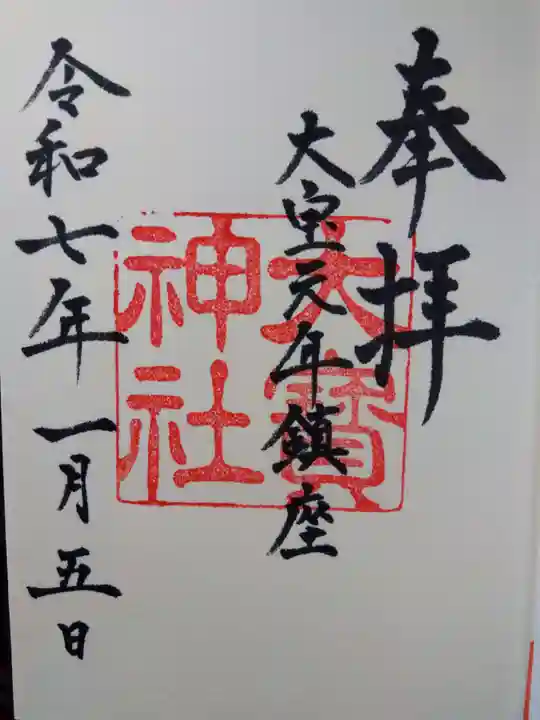 奉拝
大宝元年鎮座
大寳
神社
令和七年一月五日